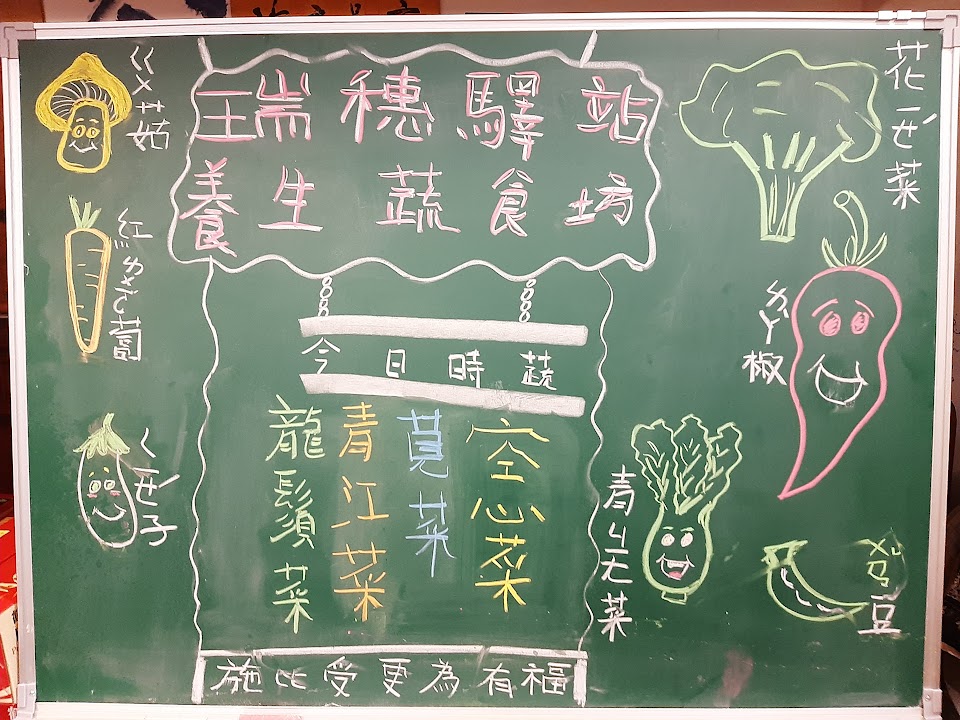 瑞穗驛站
養生蔬食坊
今日時蔬
空心菜
莧菜
青江菜
龍鬚菜
施比受更為有福
ㄍㄨ菇
紅ㄌㄨㄛˊ蔔
ㄑㄧㄝˊ子
花ㄧㄝˊ菜
ㄌㄚˋ椒
青ㄐㄤ菜
豆